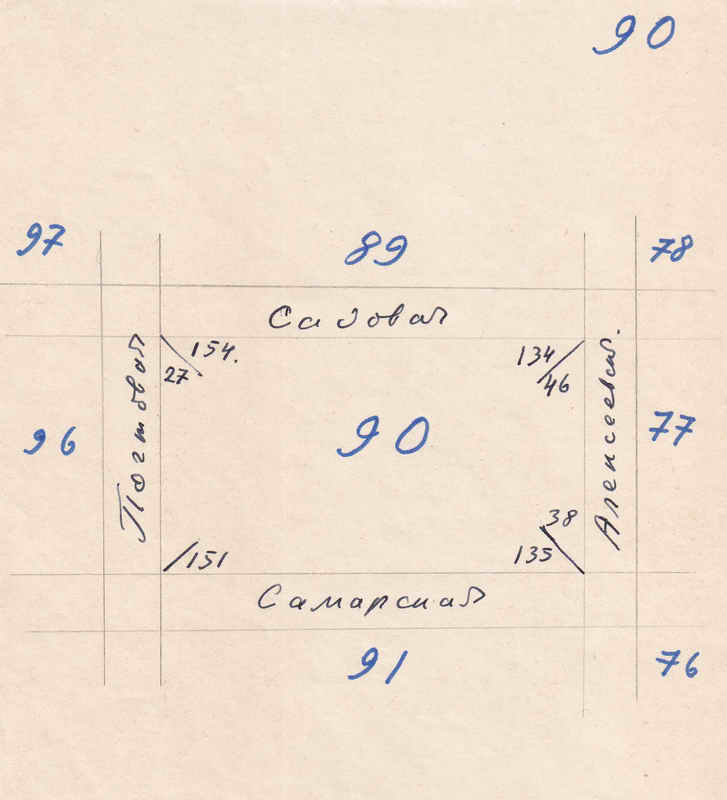 90
97
89
78
Садовая
154.
27
134
46
96
Почтовая
90
Алексеевск.
77
151
38
135
Самарская
91
76